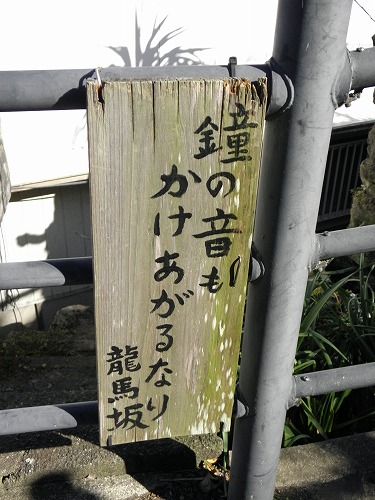 鐘の音も
かけあがるなり
龍馬坂